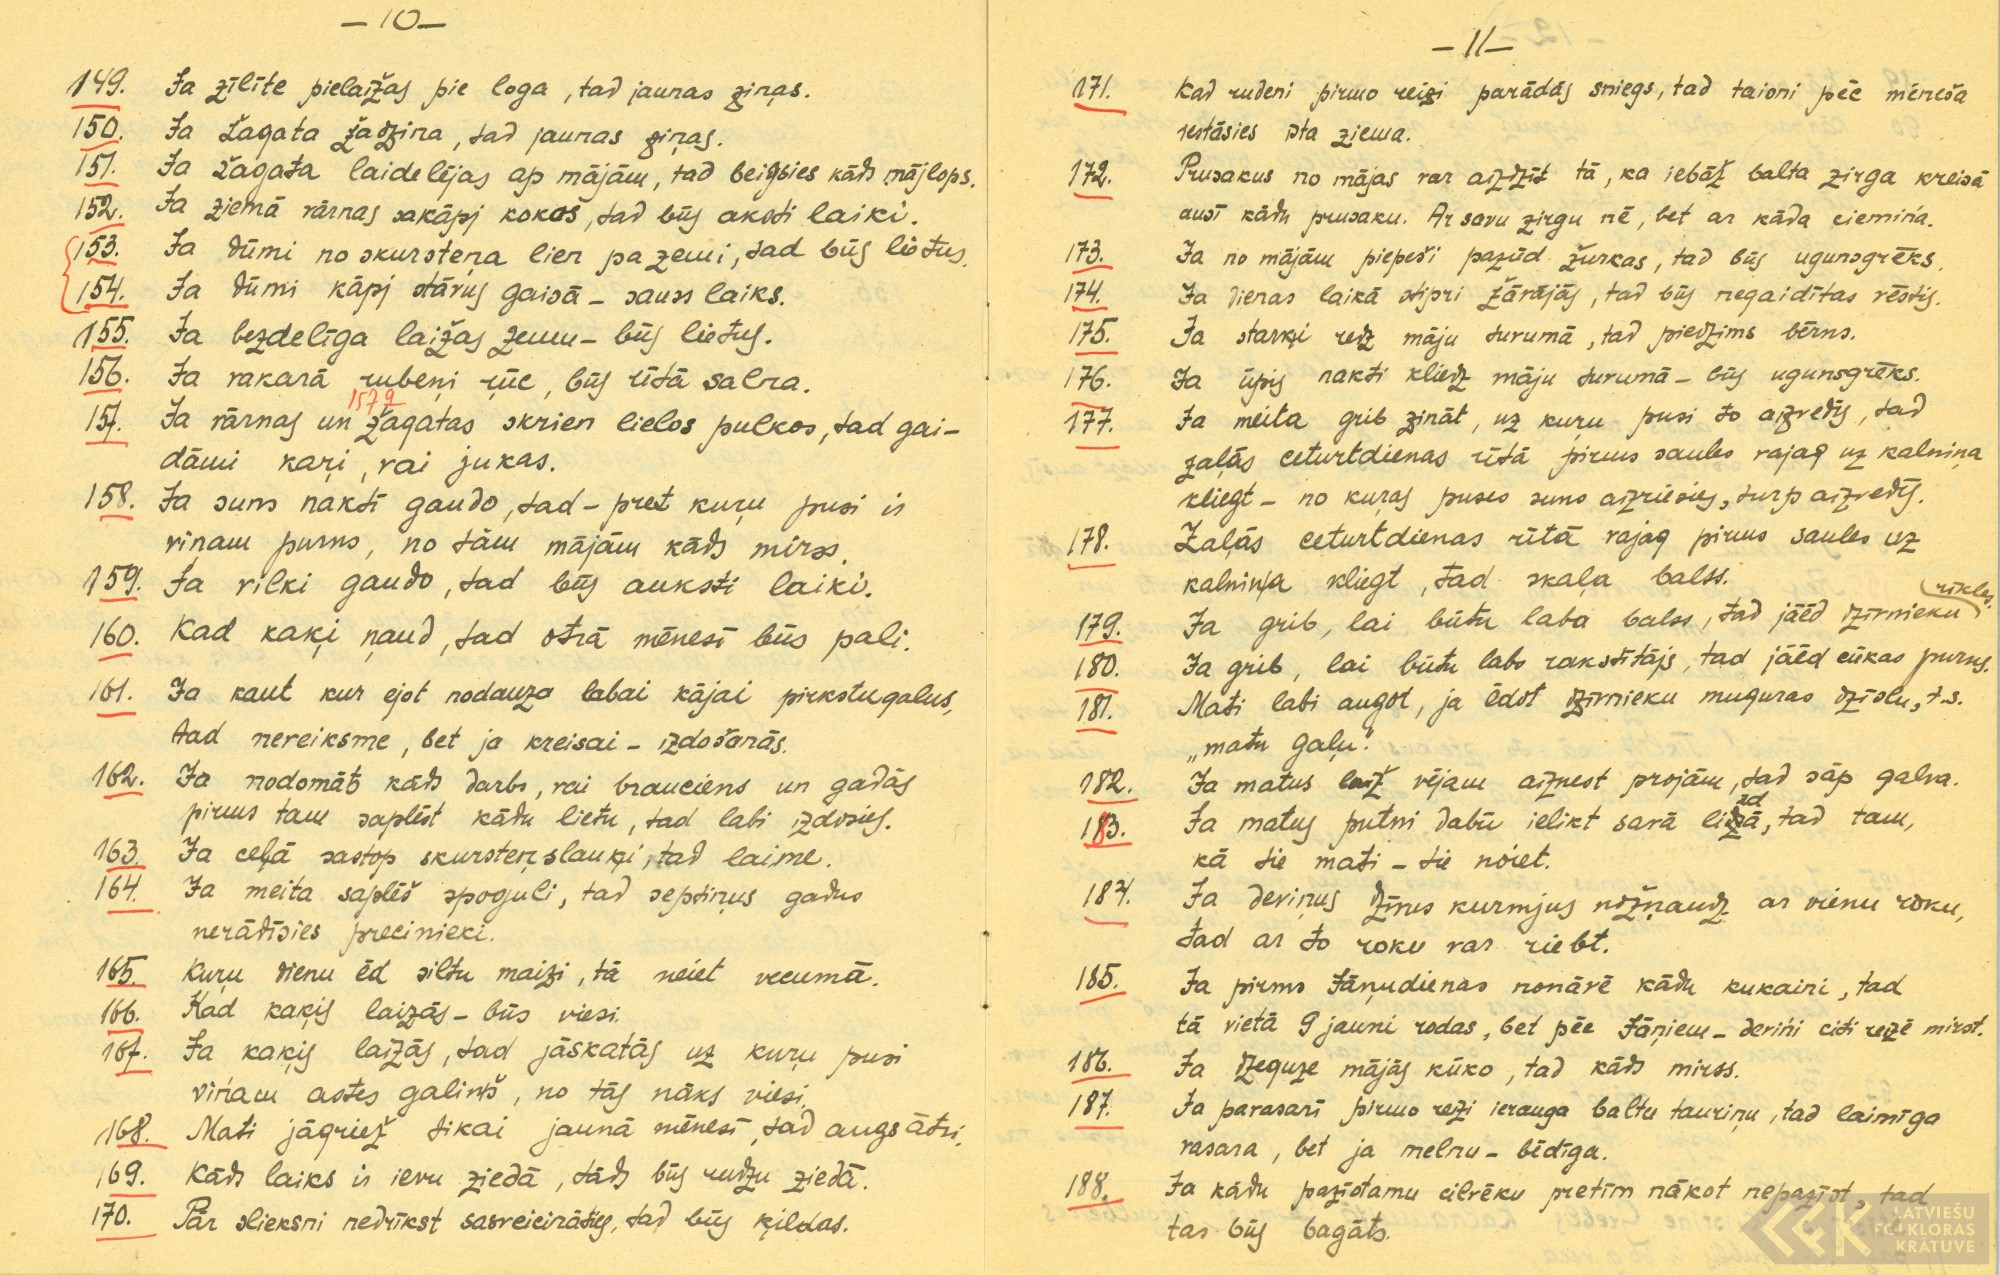 – 10 –
149. Ja zīlīte pielaižas pie loga, tad jaunas ziņas.
150. Ja žagata žadzina, tad jaunas ziņas.
151. Ja žagata laidelējas ap mājām, tad beigsies kāds mājlops.
152. Ja ziemā vārnas sakāpj kokos, tad būs aksti laiki.
153. Ja dūmi no skursteņa lien pa zemi, tad būs lietus.
154. Ja dūmi kāpj stāvus gaisā – sauss laiks.
155. Ja bezdelīga laižas zemu – būs lietus.
156. Ja vakarā rubeņi rūc, būs rītā salna.
1579
157. Ja vārnas un žagatas skrien lielos pulkos, tad gai-
dāmi kaŗi, vai jukas.
158. Ja suns naktī gaudo, tad – pret kuŗu pusi ir
viņam purns, no tām mājām kāds mirss.
159. Ja vilki gaudo, tad būs auksti laiki.
160. Kad kaķi ņaud, tad otrā mēnesī būs pali.
161. Ja kaut kur ejot nodauza labai kājai pirkstugalus,
tad nereiksme, bet ja kreisai – izdošanās.
162. Ja nodomāts kāds darbs, vai brauciens un gadās
pirms tam saplēst kādu lietu, tad labi izdosies.
163. Ja ceļā sastop skursteņslauķi, tad laime.
164. Ja meita saplēš spoguli, tad septiņus gadus
nerādīsies precinieki.
165. Kuŗu dienu ēd siltu maizi, tā neiet vecumā.
166. Kad kaķis laizās – būs viesi.
167. Ja kaķis laizās, tad jāskatās uz kuŗu pusi
viņam astes galiņš, no tās nāks viesi.
168. Mati jāgriež tikai jaunā mēnesī, tad augs ātri.
169. Kāds laiks ir ievu ziedā, tāds būs rudzu ziedā.
170. Pār slieksni nedrīkst sasveicināties, tad būs ķildas.
– 11 –
171. Kad rudenī pirmo reizi parādās sniegs, tad taisni pēc mēneša
iestāsies īsta ziema.
172. Prusakus no mājas var aizdzīt tā, ka iebāž balta zirga kreisā
ausī kādu prusaku. Ar savu zirgu nē, bet ar kāda ciemiņa.
173. Ja no mājām piepeši pazūd žurkas, tad būs ugunsgrēks.
174. Ja dienas laikā stipri žāvājās, tad būs negaidītas vēstis.
175. Ja starķi redz māju tuvumā, tad piedzims bērns.
176. Ja ūpis naktī kliedz māju tuvumā – būs ugunsgrēks.
177. Ja meita grib zināt, uz kuŗu pusi to aizvedīs, tad
zaļās ceturtdienas rītā pirms saules vajag uz kalniņa
kliegt – no kuŗas puses suns aizriesies, turp aizvedīs.
178. Zaļās ceturtdienas rītā vajag pirms saules uz
kalniņa kliegt, tad skaļa balss.
rīkles.
179. Ja grib, lai būtu laba balss, tad jāēd dzīrnieku
180. Ja grib, lai būtu labs rakstītājs, tad jāēd cūkas purns.
181. Mati labi augot, ja ēdot dzīrnieku muguras dzīslu, t.s.
„matu galu."
182. Ja matus laiž vējam aiznest projām, tad sāp galva.
183. Ja matus putni dabū ielikt savā ligzdā, tad tam,
kā tie mati – tie noiet.
184. Ja deviņus dzīvus kurmjus nožņaudz ar vienu roku,
tad ar to roku var riebt.
185. Ja pirms Jāņudienas nonāvē kādu kukaini, tad
tā vietā 9 jauni rodas, bet pēc Jāņiem – deviņi citi reizē mirst.
186. Ja dzeguze mājās kūko, tad kāds mirss.
187. Ja pavasarī pirmo reizi ierauga baltu tauriņu, tad laimīga
vasara, bet ja melnu – bēdīga.
188. Ja kādu pazīstamu cilvēku pretīm nākot nepazīst, tad
tas būs bagāts.
LATVIEŠU
FOLKLORAS
KRĀTUVE